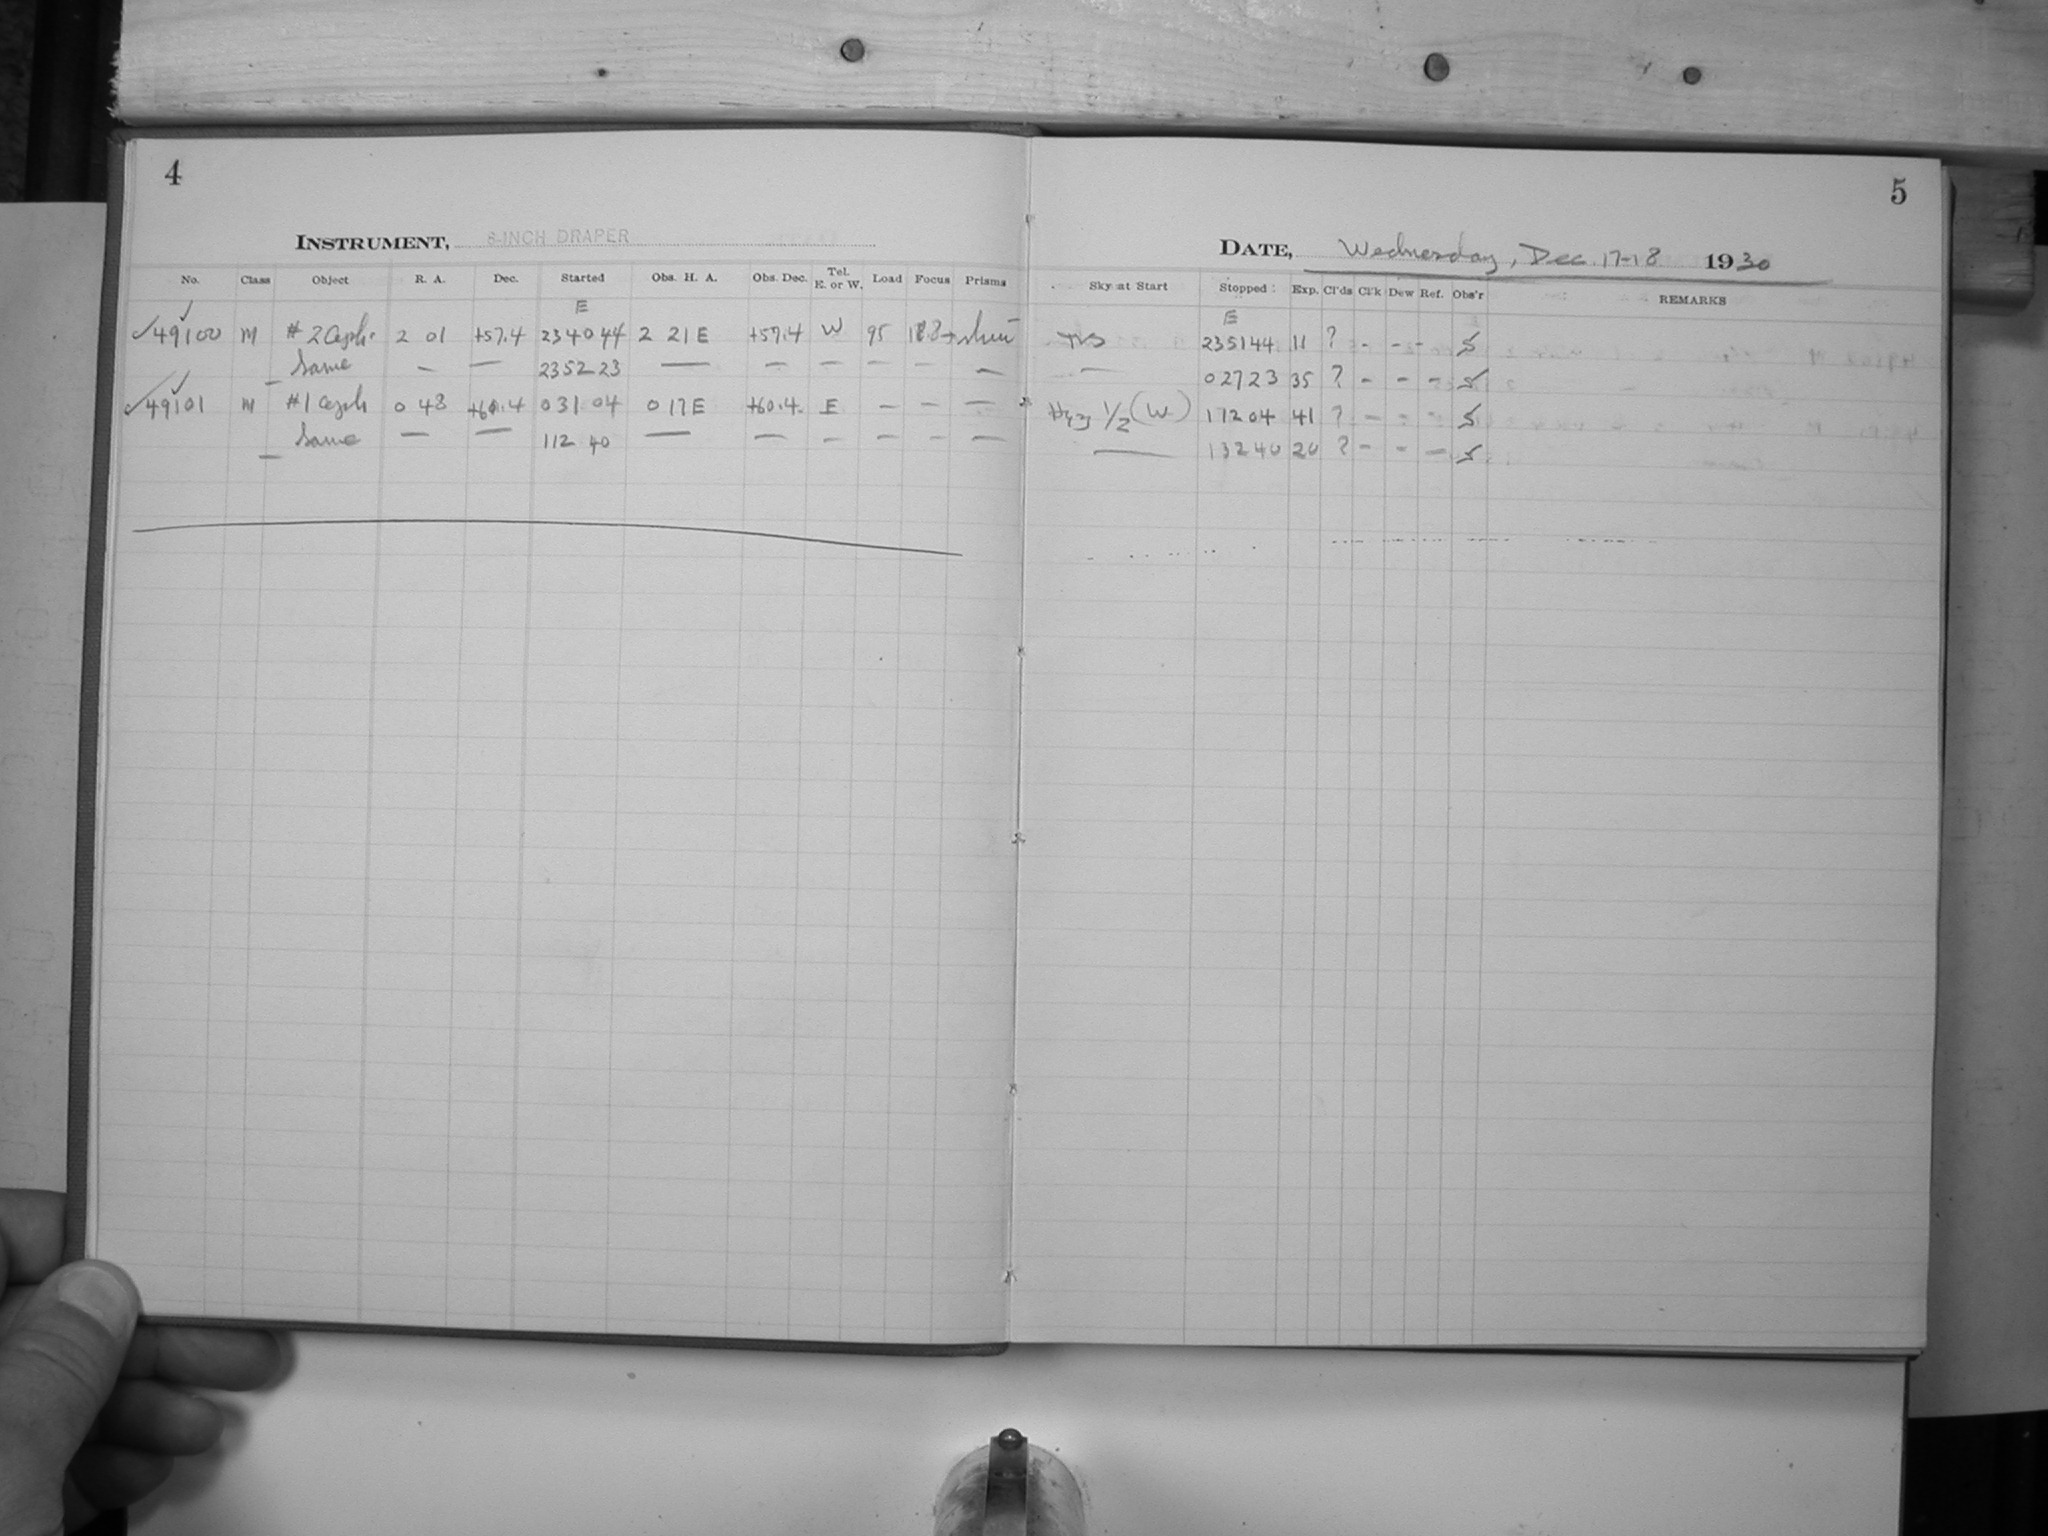 4
INSTRUMENT, 8-INCH DRAPER
No. Class Object R. A. Dec. Started Obs. H. A. Obs. Dec. Tel. E. or W. Load Focus Prisms
E
49100 M #2 Ceph. 2 01 +57.4 23 40 44 2 21 E +57.4 W 95 shui
Same — — 23 52 23 — — — — — —
49101 M #1 Ceph 0 48 +60.4 0 31 04 0 17 E +60.4 E — — —
Same — — 1 12 40 — — — — — —
5
DATE, Wednesday, Dec. 17-18 1930
Sky at Start Stopped Exp. Cl'ds Cl'k Dew Ref. Obs'r REMARKS
E
23 51 44 11 ? - - - S
— 0 27 23 35 ? - - - S
Hzy 1/2 (W) 1 12 04 41 ? - - - S
— 1 32 40 20 ? - - - S